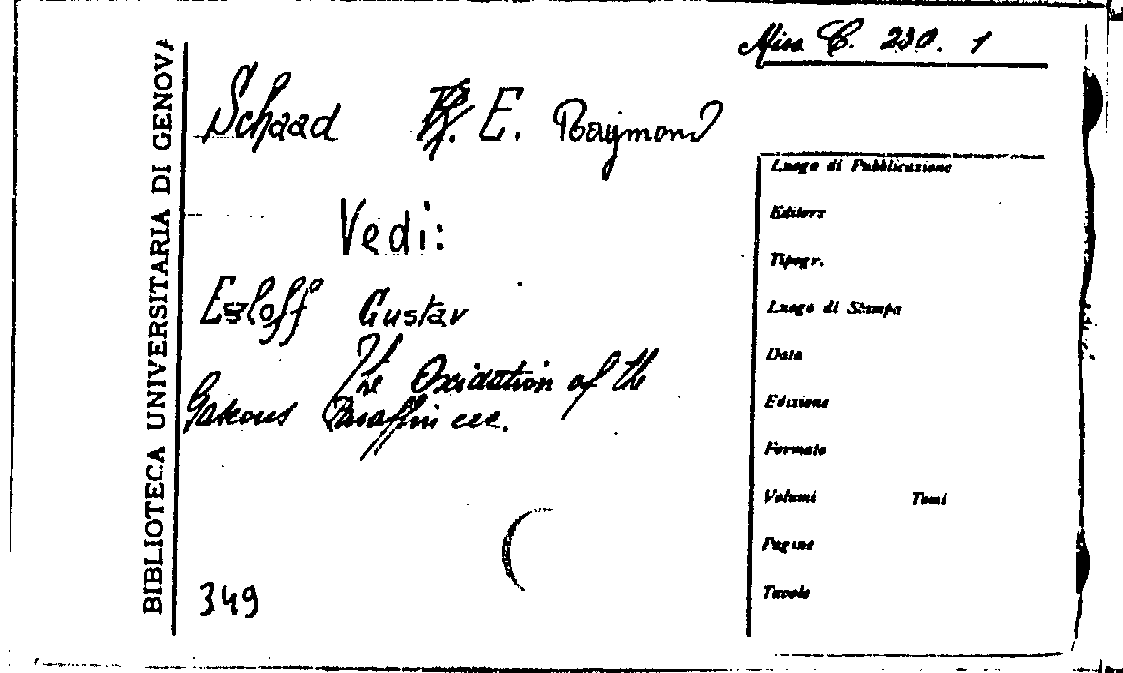 Misc C. 230. 1
BIBLIOTECA UNIVERSITARIA DI GENOVA
Schaad E. Raymond
Vedi:
Egloff Gustav
The Oxidation of the
Gaseous Paraffin ecc.
349
Luogo di Pubblicazione
Editore
Tipogr.
Luogo di Stampa
Data
Edizione
Formato
Volumi Tomi
Pagine
Tavole